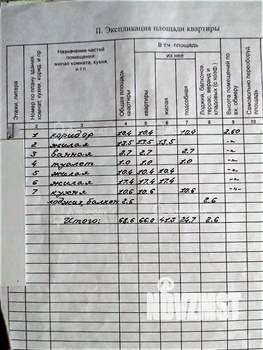 II. Экспликация площади квартиры
Этажи, литера
Номер по плану здания
комнат, кухня, корид. и пр.
Назначение частей
помещения:
жилая комната, кухня,
и т.п.
Общая площадь
квартиры
В т.ч. площадь
квартиры
из нее
жилая
подсобная
Лоджий, балконов,
террас, веранд и
кладовых (с коэф.)
Высота помещений по
вн. обмеру
Самовольно переоборуд.
площадь
1 коридор 10.4 10.4 10.4 2.60
2 жилая 13.5 13.5 13.5 -"-
3 ванная 2.7 2.7 2.7 -"-
4 туалет 1.0 1.0 1.0 -"-
5 жилая 10.4 10.4 10.4 -"-
6 жилая 17.4 17.4 17.4 -"-
7 кухня 10.6 10.6 10.6 -"-
лоджия, балкон 2.6 2.6
Итого: 68.6 66.0 41.3 24.7 2.6
N1VZMST